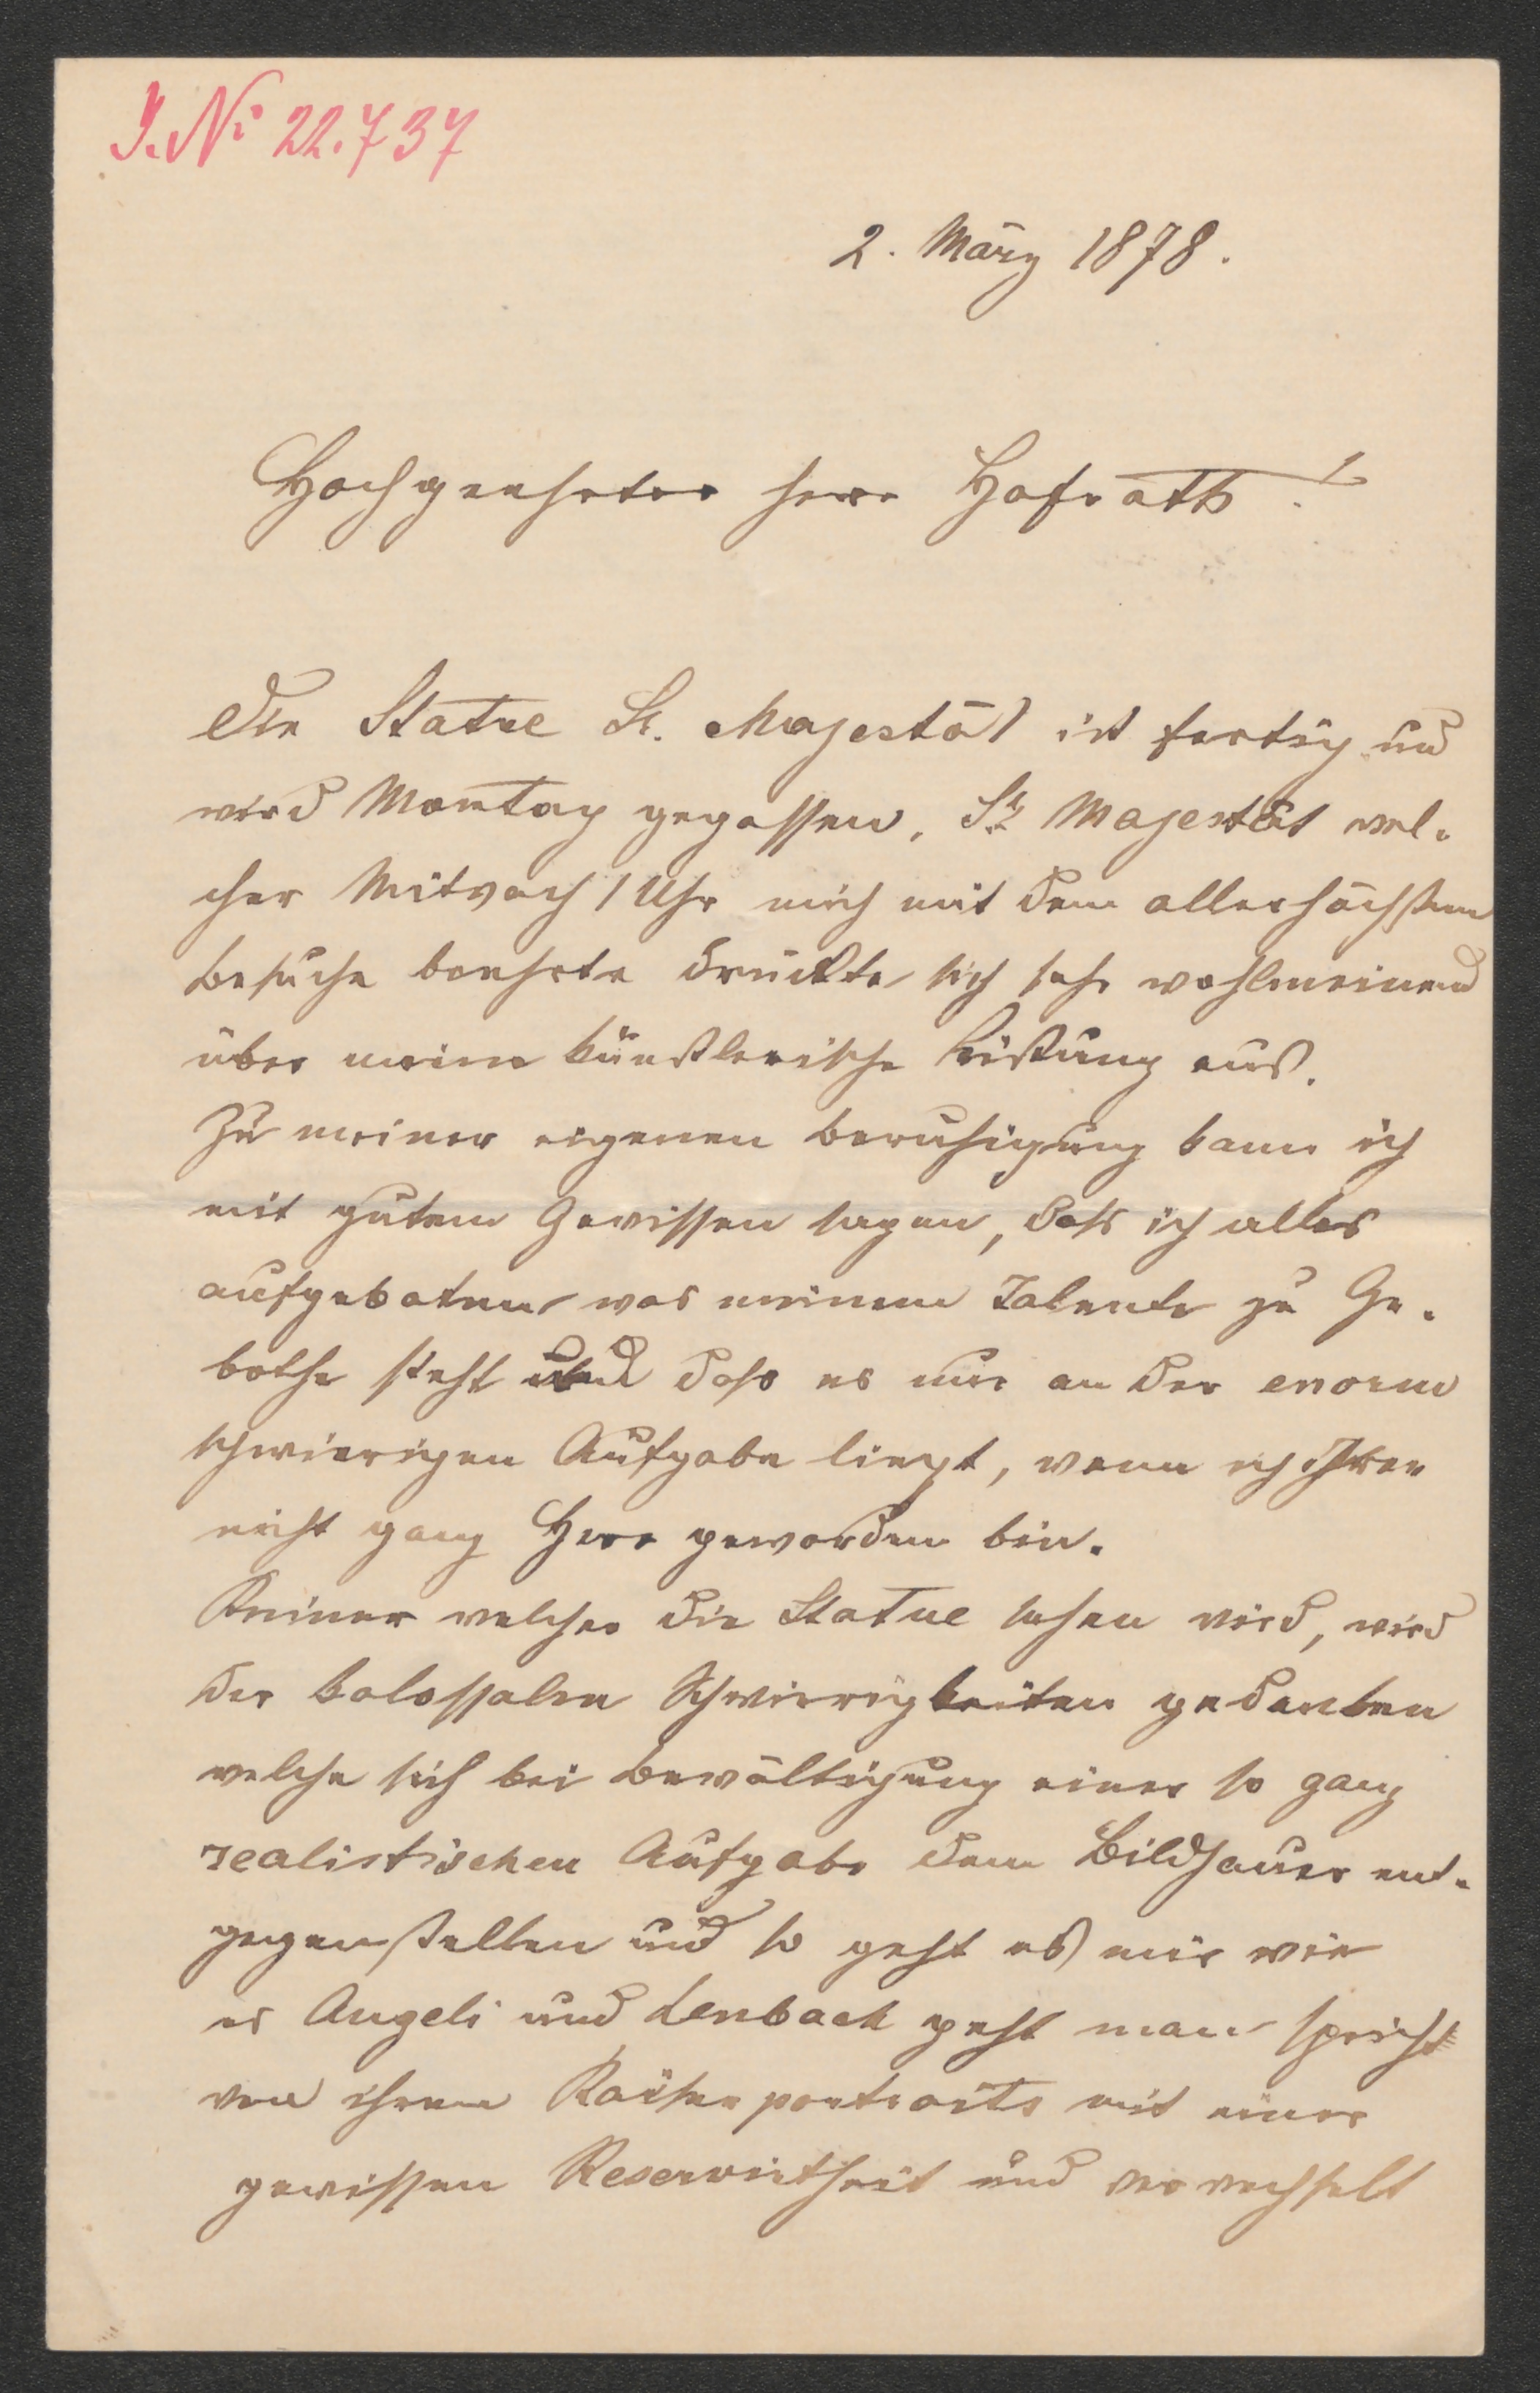 J. No 22.737
2. März 1878.
Hochgeehrter Herr Hofrath!
Die Statue Sr. Majestät ist fertig und
wird Montag gegossen. Sr. Majestät wel-
cher Mitwoch 1 Uhr mich mit dem allerhöchsten
Besuche beehrte drückte sich sehr wohlmeinend
über meine künstlerische Leistung aus.
Zu meiner eigenen Beruhigung kann ich
mit gutem Gewissen sagen, daß ich alles
aufgeboten was meinem Talente zu Ge-
bothe steht und daß es nur an der enorm
schwierigen Aufgabe liegt, wenn ich ihrer
nicht ganz Herr geworden bin.
Keiner welcher die Statue sehen wird, wird
der kolossalen Schwierigkeiten gedenken
welche sich bei Bewältigung einer so ganz
realistischen Aufgabe dem Bildhauer ent-
gegenstellen und so geht es mir wie
es Angeli und Lenbach geht man spricht
von ihrem Kaiserportraits mit einer
gewissen Reservirtheit und verwechselt